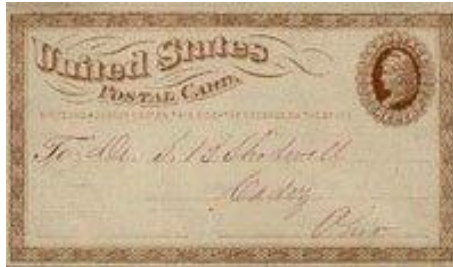 United States
POSTAL CARD.
To Mr. S. B. Shotwell
Cadiz
Ohio